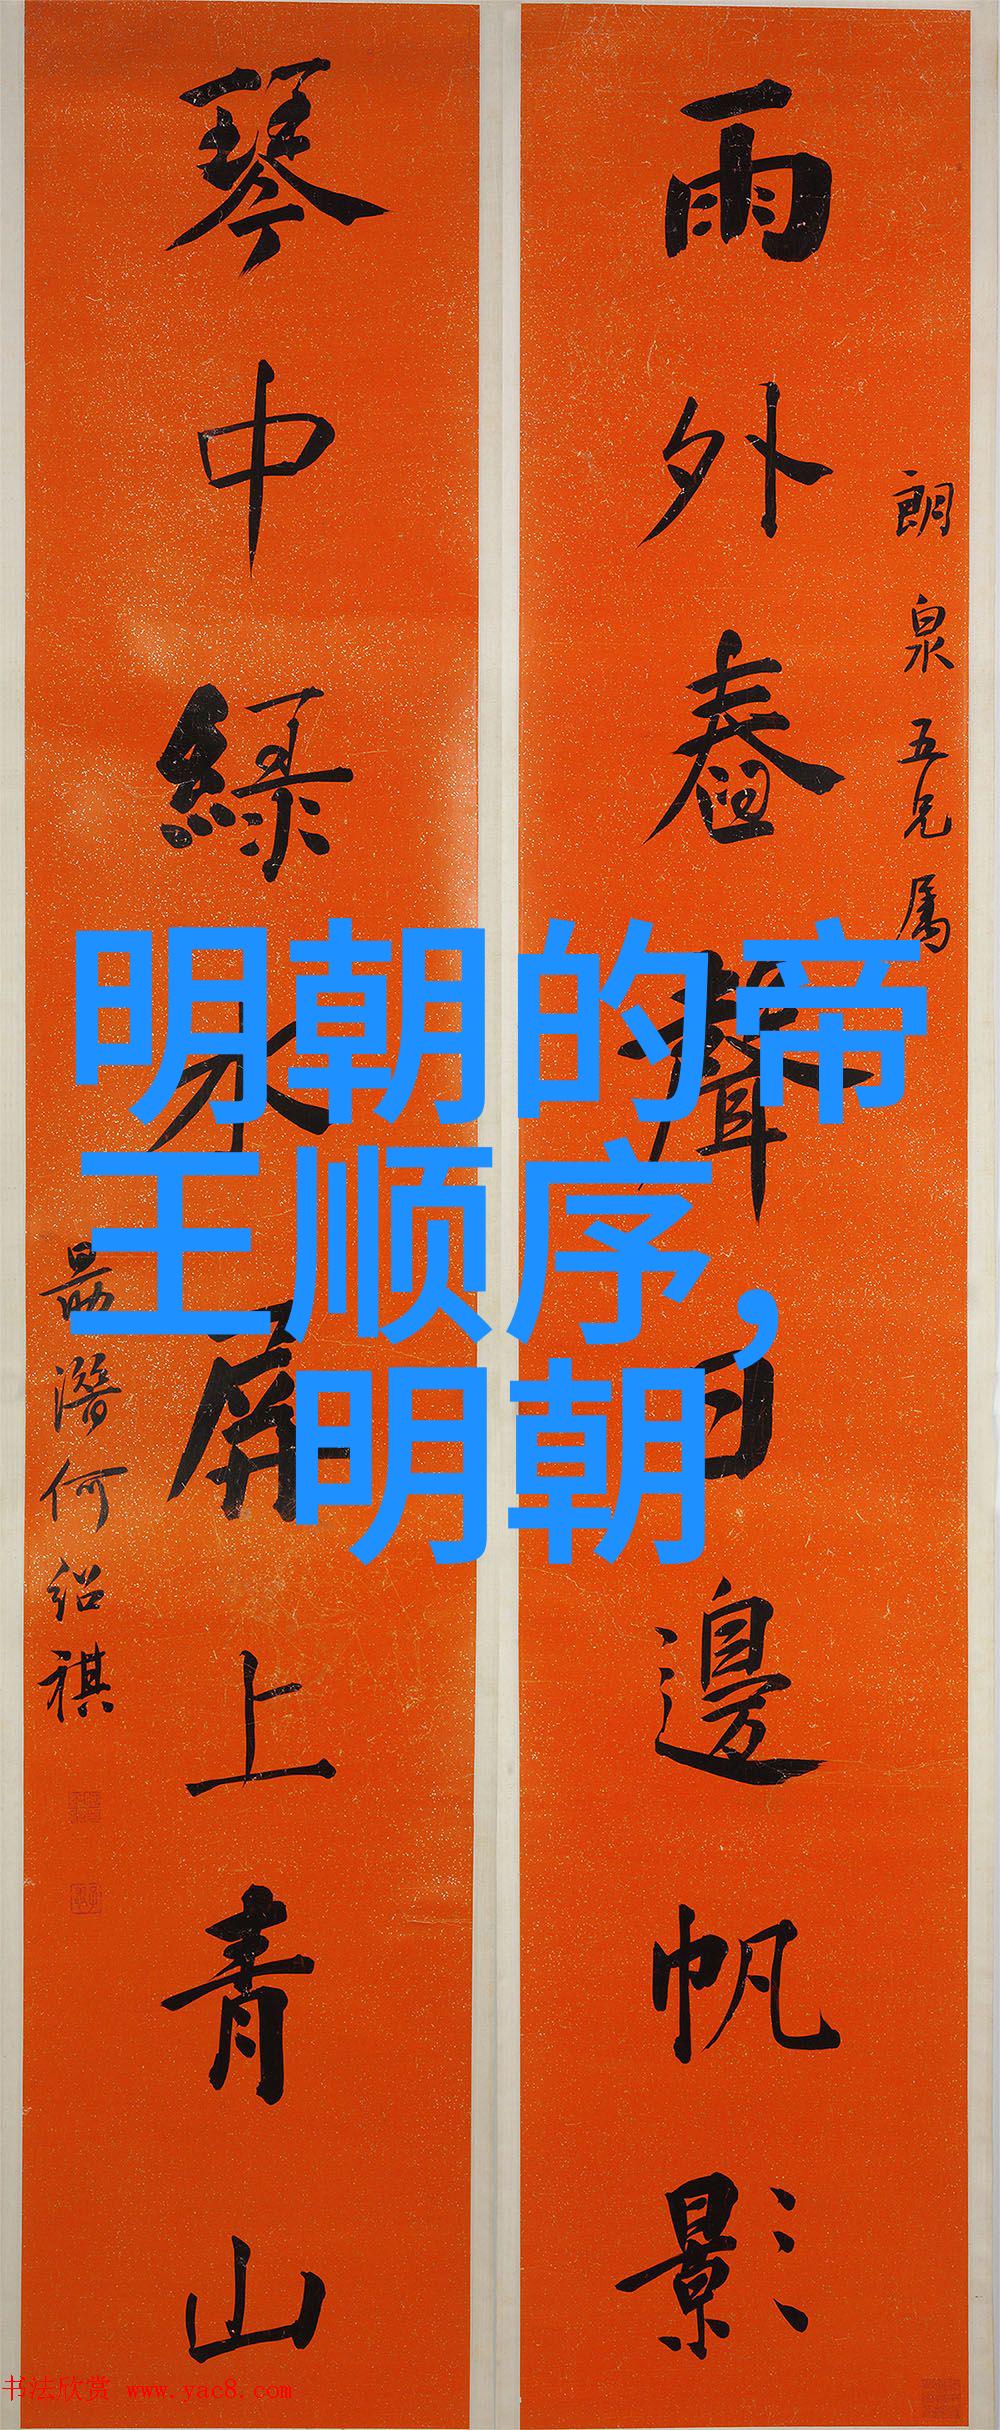 朗泉五兄属
雨外舂聲 邊帆影
琴中綠水屏上青山
勗潛何紹祺
明朝的帝
王顺序，
明朝
书法欣赏 www.yac8.com